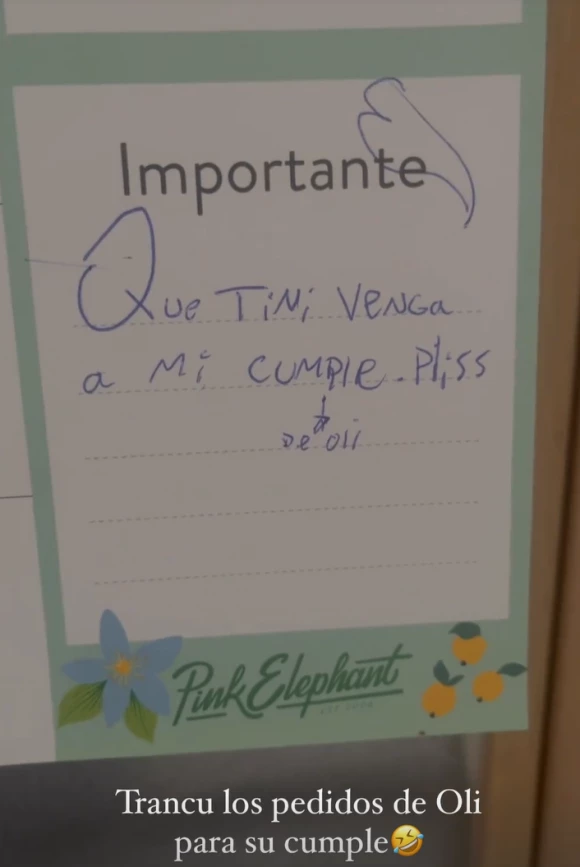 Importante
Que TiNi VENGa
a Mi CUMPlE. Pliss
De Oli
Pink Elephant
Trancu los pedidos de Oli
para su cumple🤣